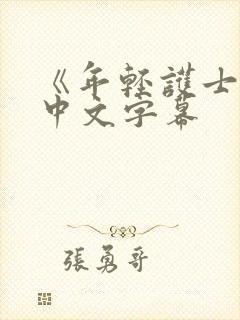 《年輕護士
中文字幕
張勇哥